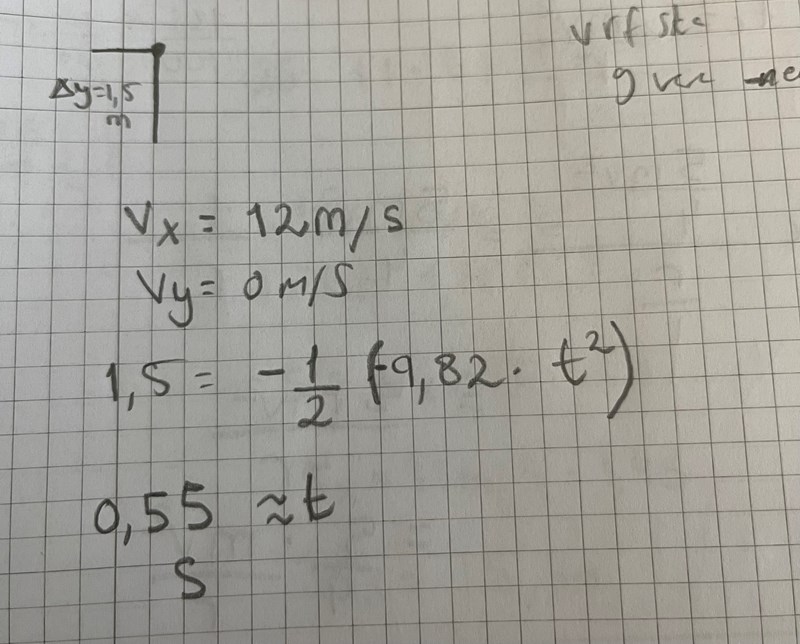 Δy=1,5
m
Vx = 12m/s
Vy = 0 m/s
1,5 = -1/2 (-9,82 · t²)
0,55 ≈ t
s